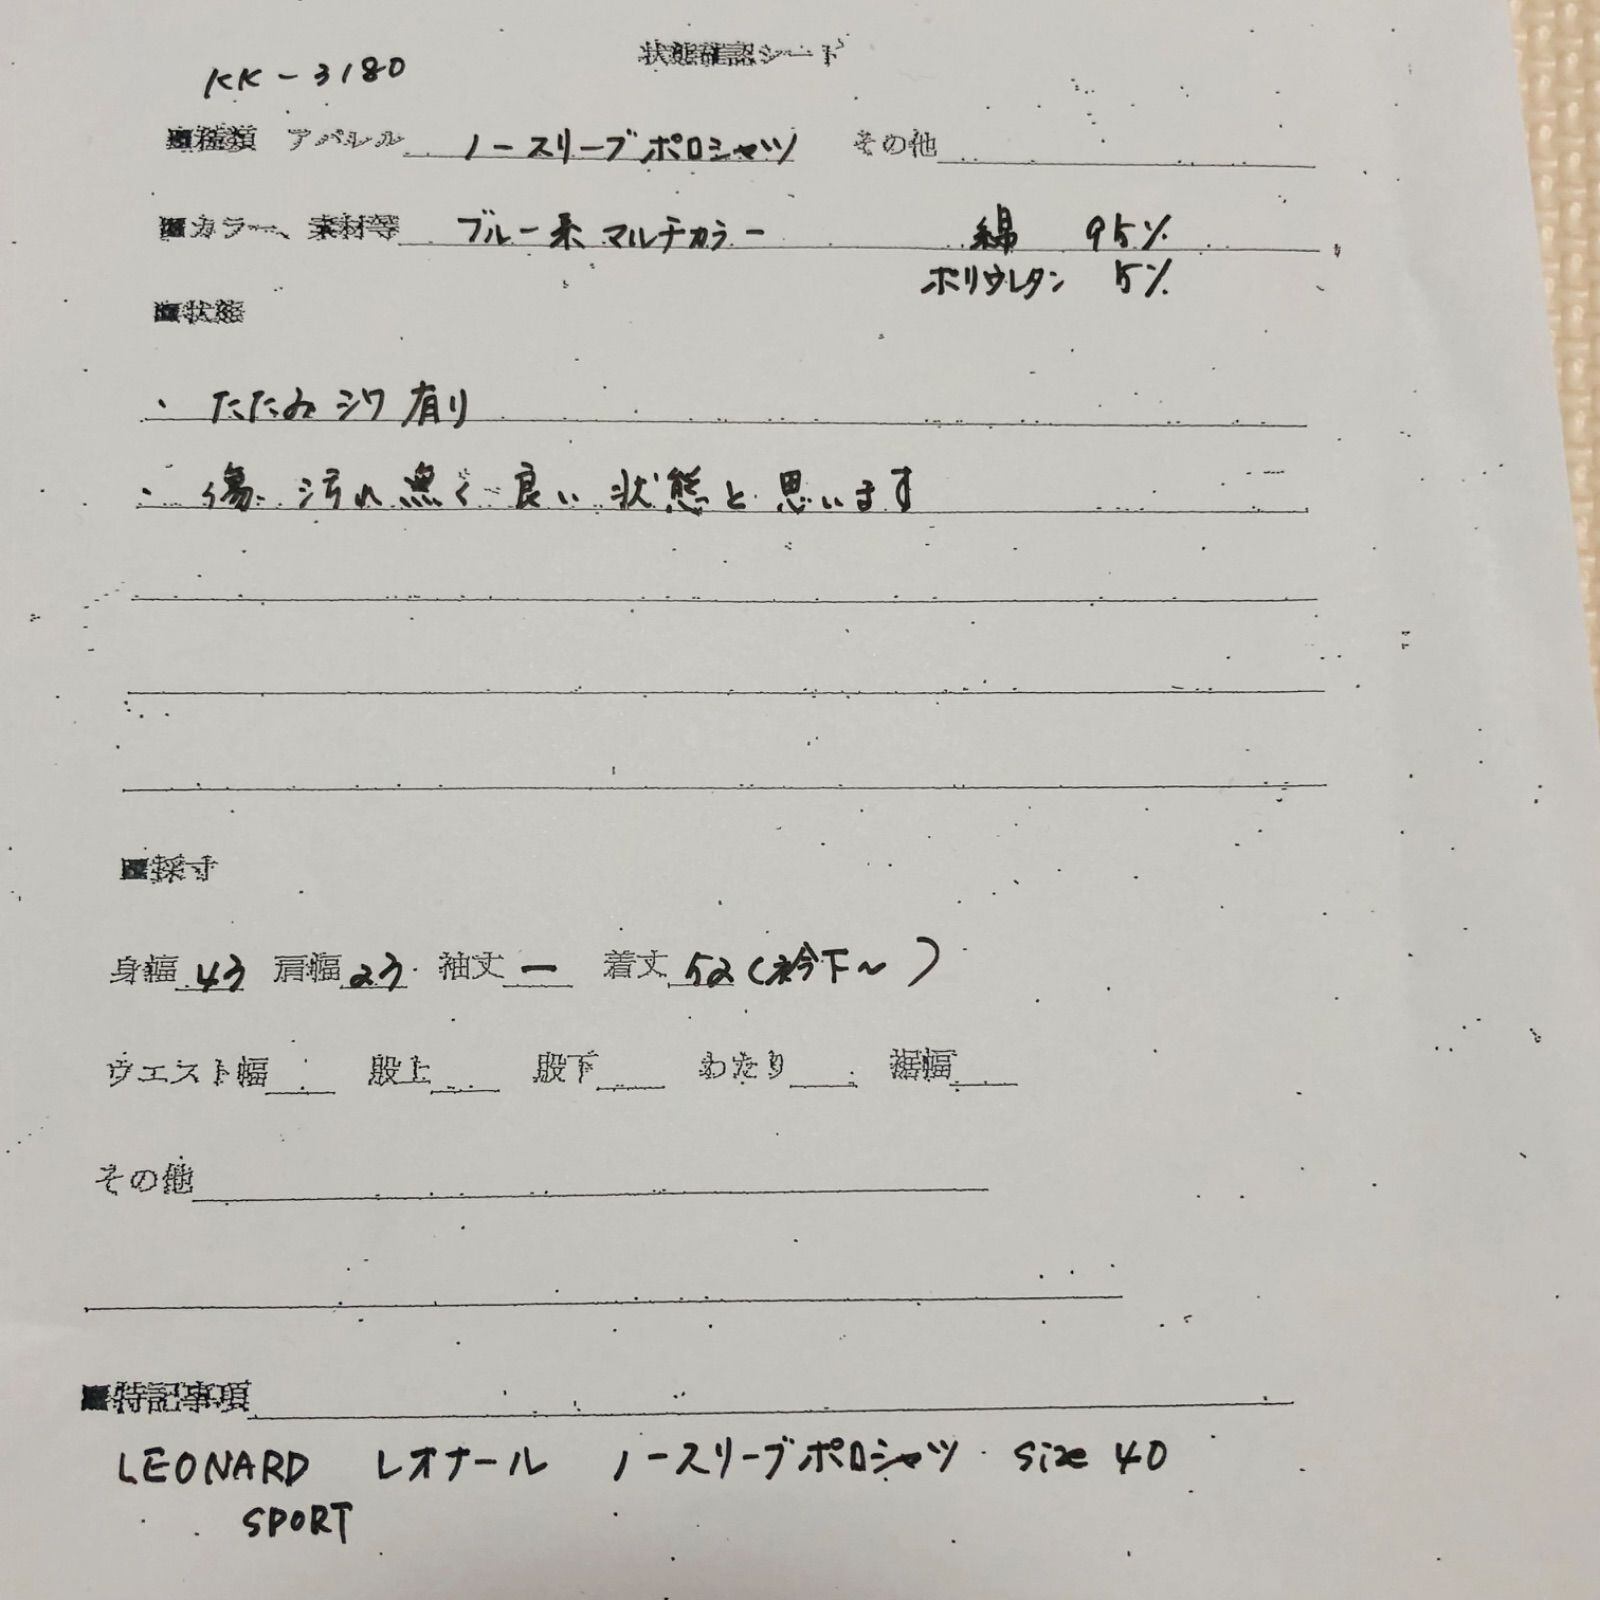 状態確認シート
KK-3180
■種類 アパレル ノースリーブポロシャツ その他
■カラー、素材等 ブルー系 マルチカラー 綿 95%
ポリウレタン 5%
■状態
・ たたみシワ有り
・ 傷、汚れ無く良い状態と思います
■採寸
身幅 43 肩幅 23 袖丈 ー 着丈 52(衿下~)
ウエスト幅 股上 股下 わたり 裾幅
その他
■特記事項
LEONARD レオナール ノースリーブポロシャツ size 40
SPORT